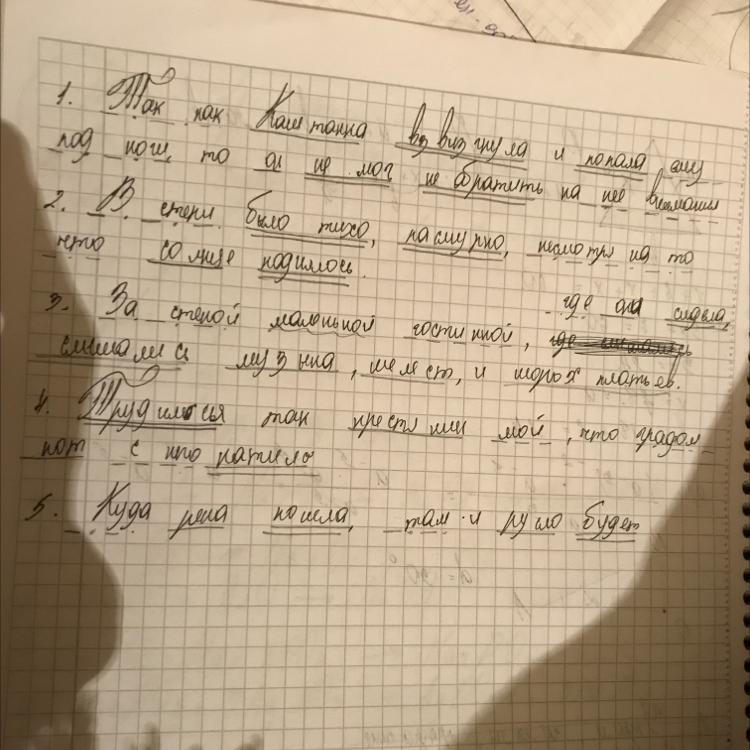 1. Так как Каштанка взвизгнула и попала ему
под ноги, то он не мог не обратить на неё внимания
2. В степи было тихо, пасмурно, несмотря на то
что солнце поднялось.
3. За стеной маленькой гостиной, где она сидела,
слышались музыка, шелест, и шорох платьев.
4. Трудился так крестьянин мой, что градом
пот с него катился
5. Куда река пошла, там и русло будет
d = 90°